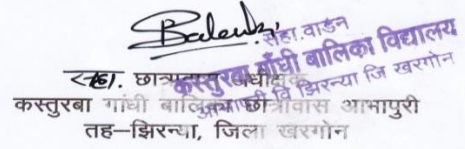 सहा. वार्डन
कस्तुरबा गाँधी बालिका विद्यालय
आभापुरी वि झिरन्या जि खरगोन
छात्रावास अधीक्षक
कस्तुरबा गांधी बालिका छात्रावास आभापुरी
तह–झिरन्या, जिला खरगोन